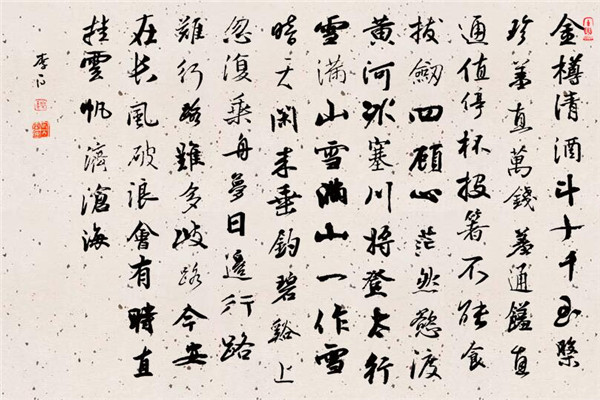 金樽清酒斗十千玉槃
珍羞直萬錢羞通饈直
通值停杯投箸不能食
拔劍四顧心茫然慾渡
黄河冰塞川將登太行
雪滿山雪滿山一作雪
暗天閑来垂釣碧谿上
忽復乘舟夢日邊行路
難行路難多歧路今安
在長風破浪會有時直
挂雲帆濟滄海
李白